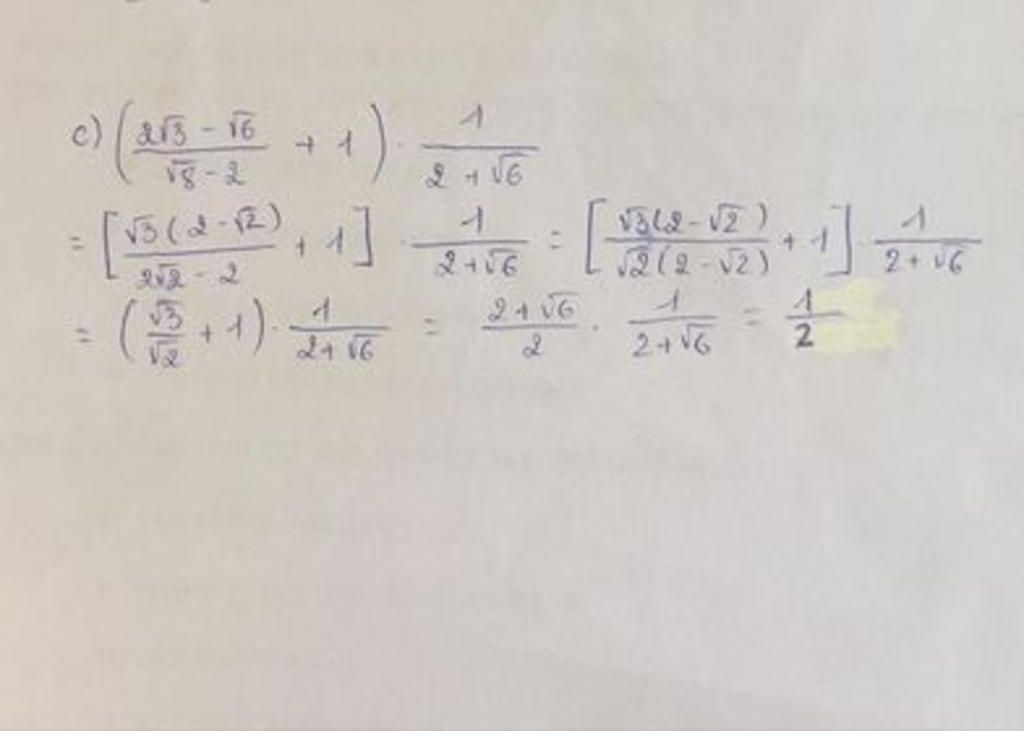 c) (2√3 - √6 / √8 - 2 + 1) · 1 / 2 + √6
= [√3(2 - √2) / 2√2 - 2 + 1] · 1 / 2 + √6 = [√3(2 - √2) / √2(2 - √2) + 1] · 1 / 2 + √6
= (√3 / √2 + 1) · 1 / 2 + √6 = 2 + √6 / 2 · 1 / 2 + √6 = 1 / 2